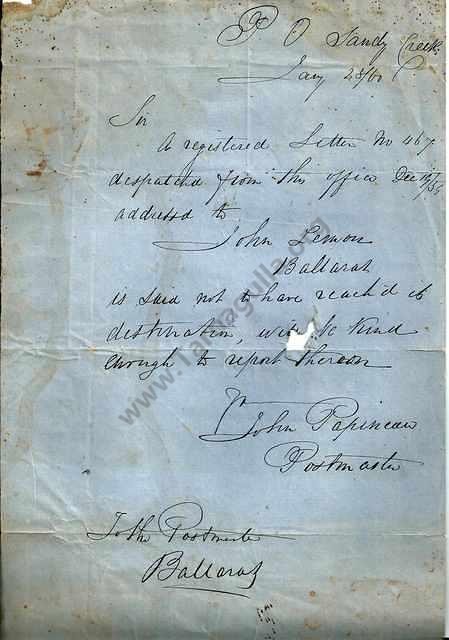 P O Sandy Creek
Jany 28/60
Sir
A registered Letter No 467
despatched from this office Dec
addressed to
John Lemon
Ballarat
is said not to have reach'd its
destination, will be kind
enough to report thereon
John Papineau
Postmaster
To the Postmaster
Ballarat
www.Tarnagulla.org